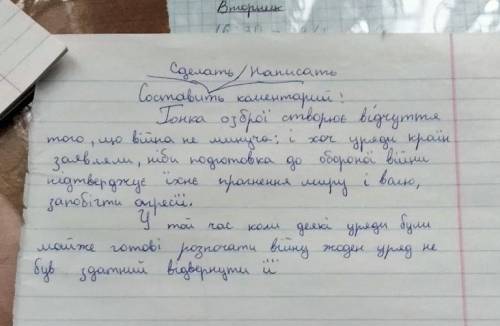 Вторник
Сделать/Написать
Составить коментарий:
Гонка озброї створює відчуття
того, що війна не минуча: і хоч уряди країн
заявляли, ніби подготовка до обороної війни
підтверджує їхнє прагнення миру і валю,
запобігти агресії.
У той час коли деякі уряди були
майже готові розпочати війну жоден уряд не
був здатний відвернути її